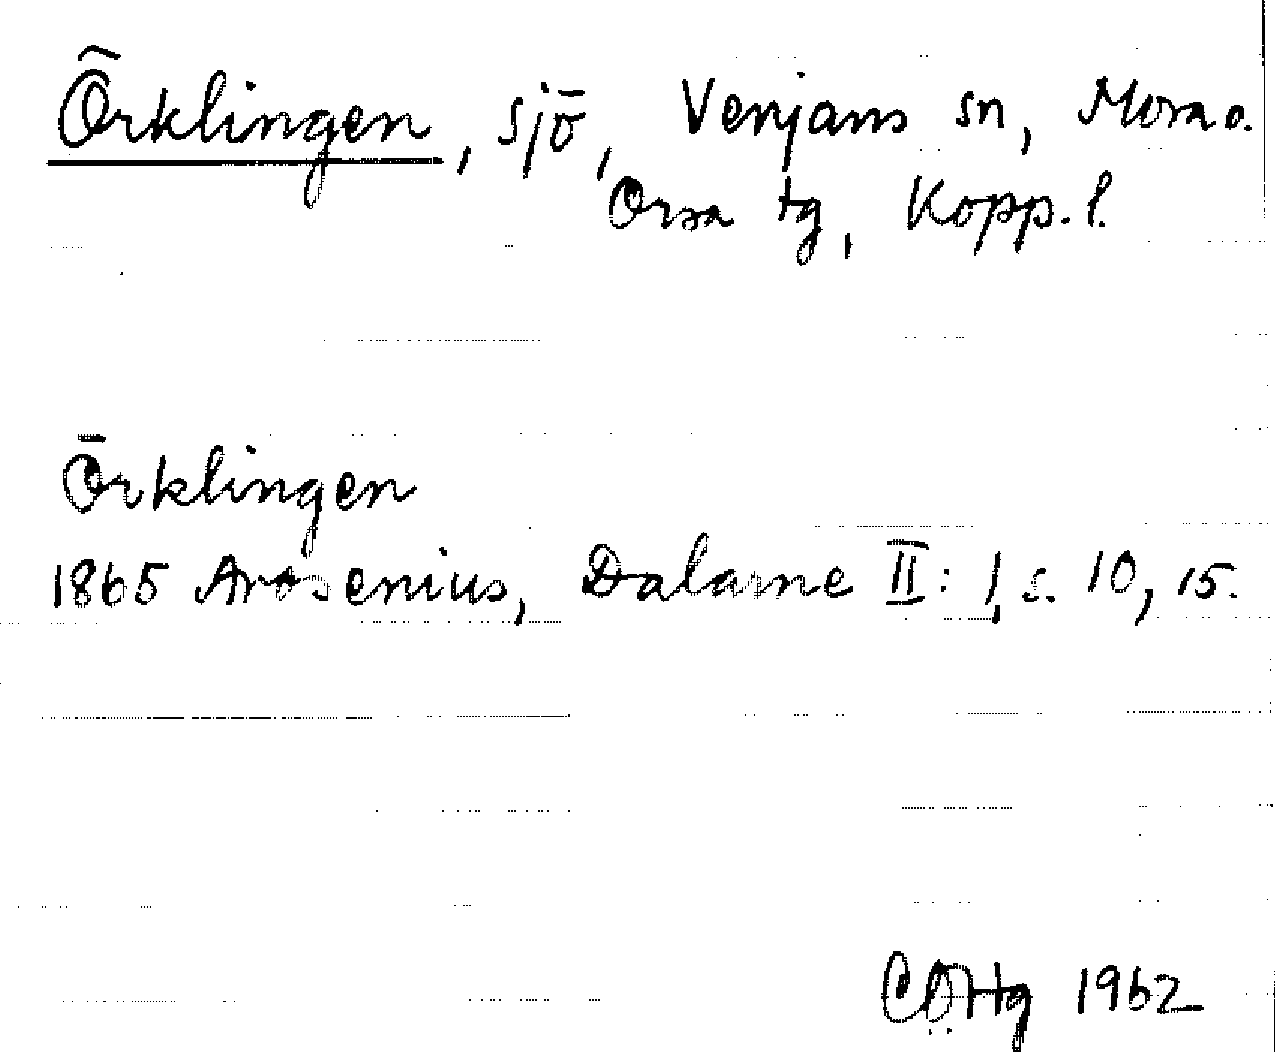 Örklingen, sjö, Venjans sn, Mora o.
Orsa tg, Kopp. l.
Örklingen
1865 Arosenius, Dalarne II: 1, s. 10, 15.
1962